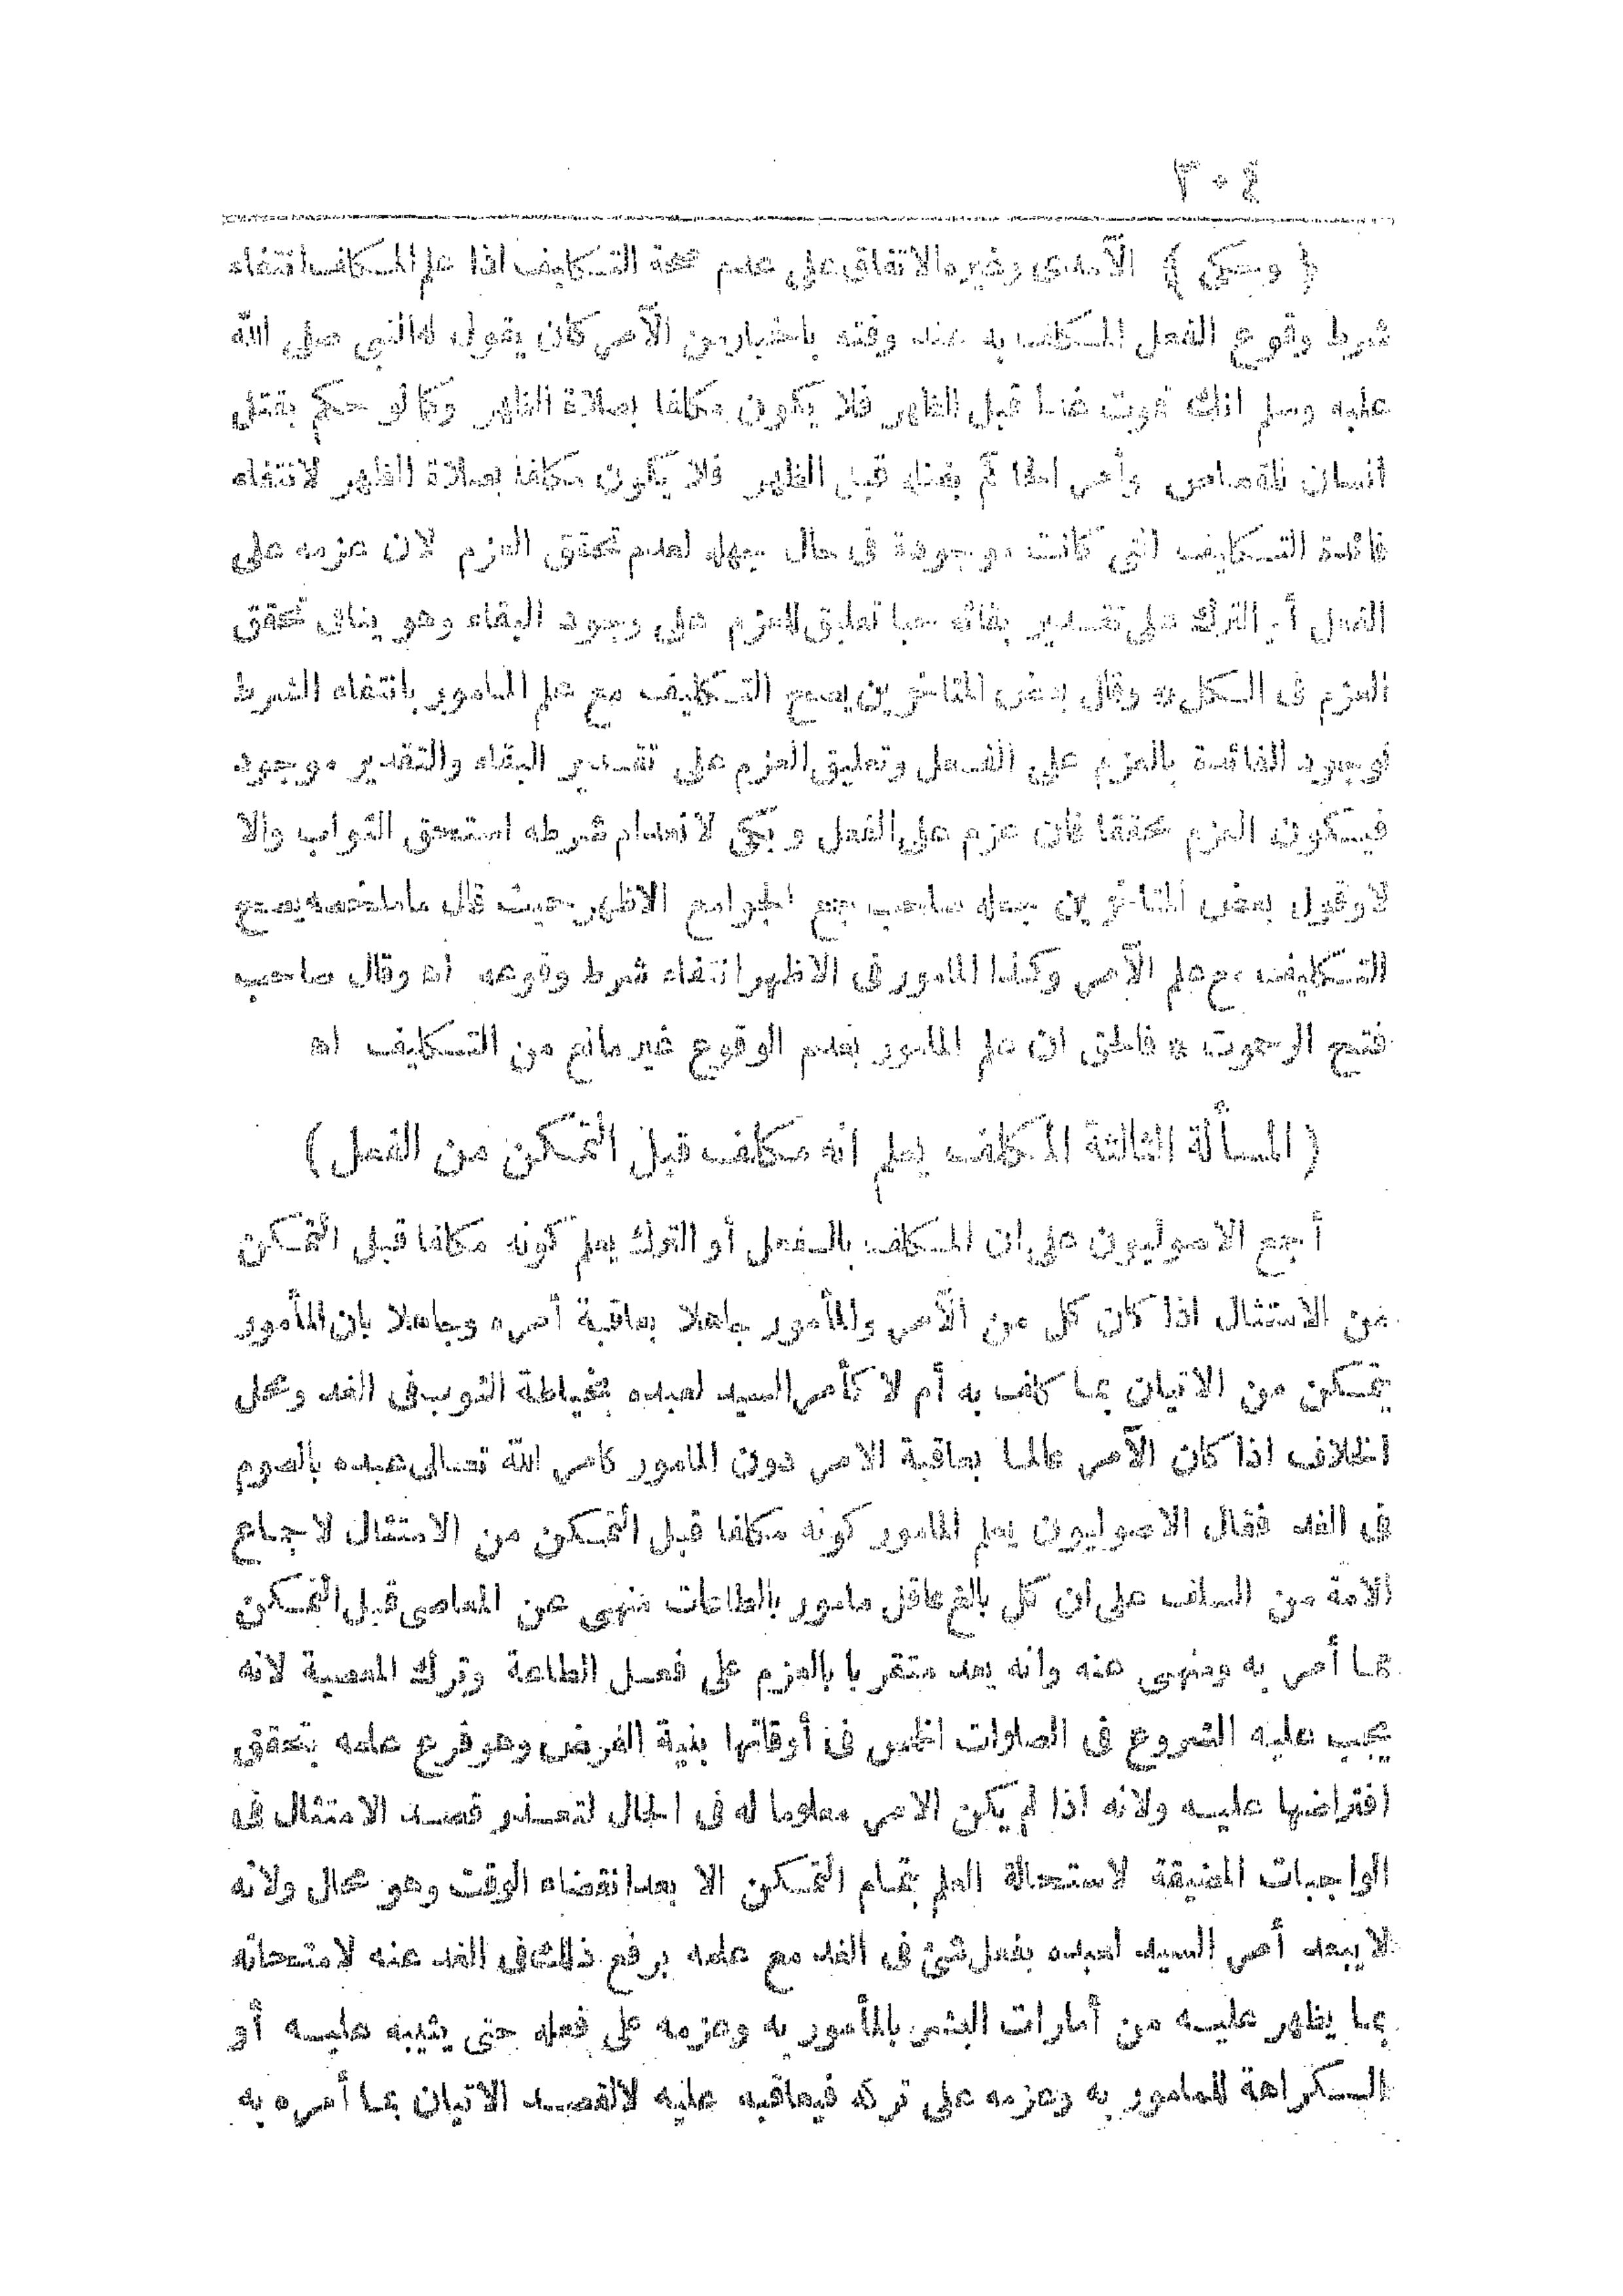 ٣٠٤
﴿ وحكى ﴾ الآمدى وغيره الاتفاق على عدم صحة التكليف اذا علم المكلف انتفاء
شرط وقوع الفعل المكلف به عند وقته باخبار من الآمر كان يقول له النبي صلى الله
عليه وسلم انك تموت غدا قبل الظهر فلا يكون مكلفا بصلاة الظهر وكما لو حكم بقتل
انسان وأمر قبل الظهر فلا يكون مكلفا بصلاة الظهر لانتفاء
فائدة التكليف التى كانت موجودة فى حال جهله لعدم تحقق العزم لان عزمه على
الفعل أو الترك على تقدير بقائه حيا تعليق للعزم على وجود البقاء وهو ينافى تحقق
العزم فى الكل * وقال بعض المتاخرين يصح التكليف مع علم المامور بانتفاء الشرط
لوجود الفائدة بالعزم على الفعل وتعليق العزم على تقدير البقاء والتقدير موجود
فيكون العزم محققا فان عزم على الفعل و لانعدام شرطه استحق الثواب والا
لا وقول بعض المتاخرين جعله صاحب جمع الجوامع الاظهر حيث قال ماملخصه يصح
التكليف مع علم الآمر وكذا المامور فى الاظهر انتفاء شرط وقوعه اه وقال صاحب
فتح الرحموت * فالحق ان علم المامور بعدم الوقوع غير مانع من التكليف اه
( المسألة الثالثة المكلف يعلم انه مكلف قبل التمكن من الفعل )
أجمع الاصوليون على ان المكلف بالفعل أو الترك يعلم كونه مكلفا قبل التمكن
من الامتثال اذا كان كل من الآمر والمأمور جاهلا بعاقبة أمره وجاهلا بان المأمور
يتمكن من الاتيان بما كلف به أم لا كأمر السيد لعبده بخياطة الثوب فى الغد ومحل
الخلاف اذا كان الآمر عالما بعاقبة الامر دون المامور كامر الله تعالى عبده بالصوم
فى الغد فقال الاصوليون يعلم المامور كونه مكلفا قبل التمكن من الامتثال لاجماع
الامة من السلف على ان كل بالغ عاقل مامور بالطاعات منهى عن المعاصى قبل التمكن
مما أمر به ومنهى عنه وانه يعد متقربا بالعزم على فعل الطاعة وترك المعصية لانه
يجب عليه الشروع فى الصلوات الخمس فى أوقاتها بنية الفرض وهو فرع علمه بتحقق
افتراضها عليه ولانه اذا لم يكن الامر معلوما له فى الحال لتعذر قصد الامتثال فى
الواجبات المضيقة لاستحالة العلم بتمام التمكن الا بعد انقضاء الوقت وهو محال ولانه
لا يبعد أمر السيد لعبده بفعل شئ فى الغد مع علمه برفع ذلك فى الغد عنه لامتحانه
بما يظهر عليه من أمارات البشر بالمأمور به وعزمه على فعله حتى يثيبه عليه أو
الكراهة للمامور به وعزمه على تركه فيعاقبه عليه لالقصد الاتيان بما أمره به